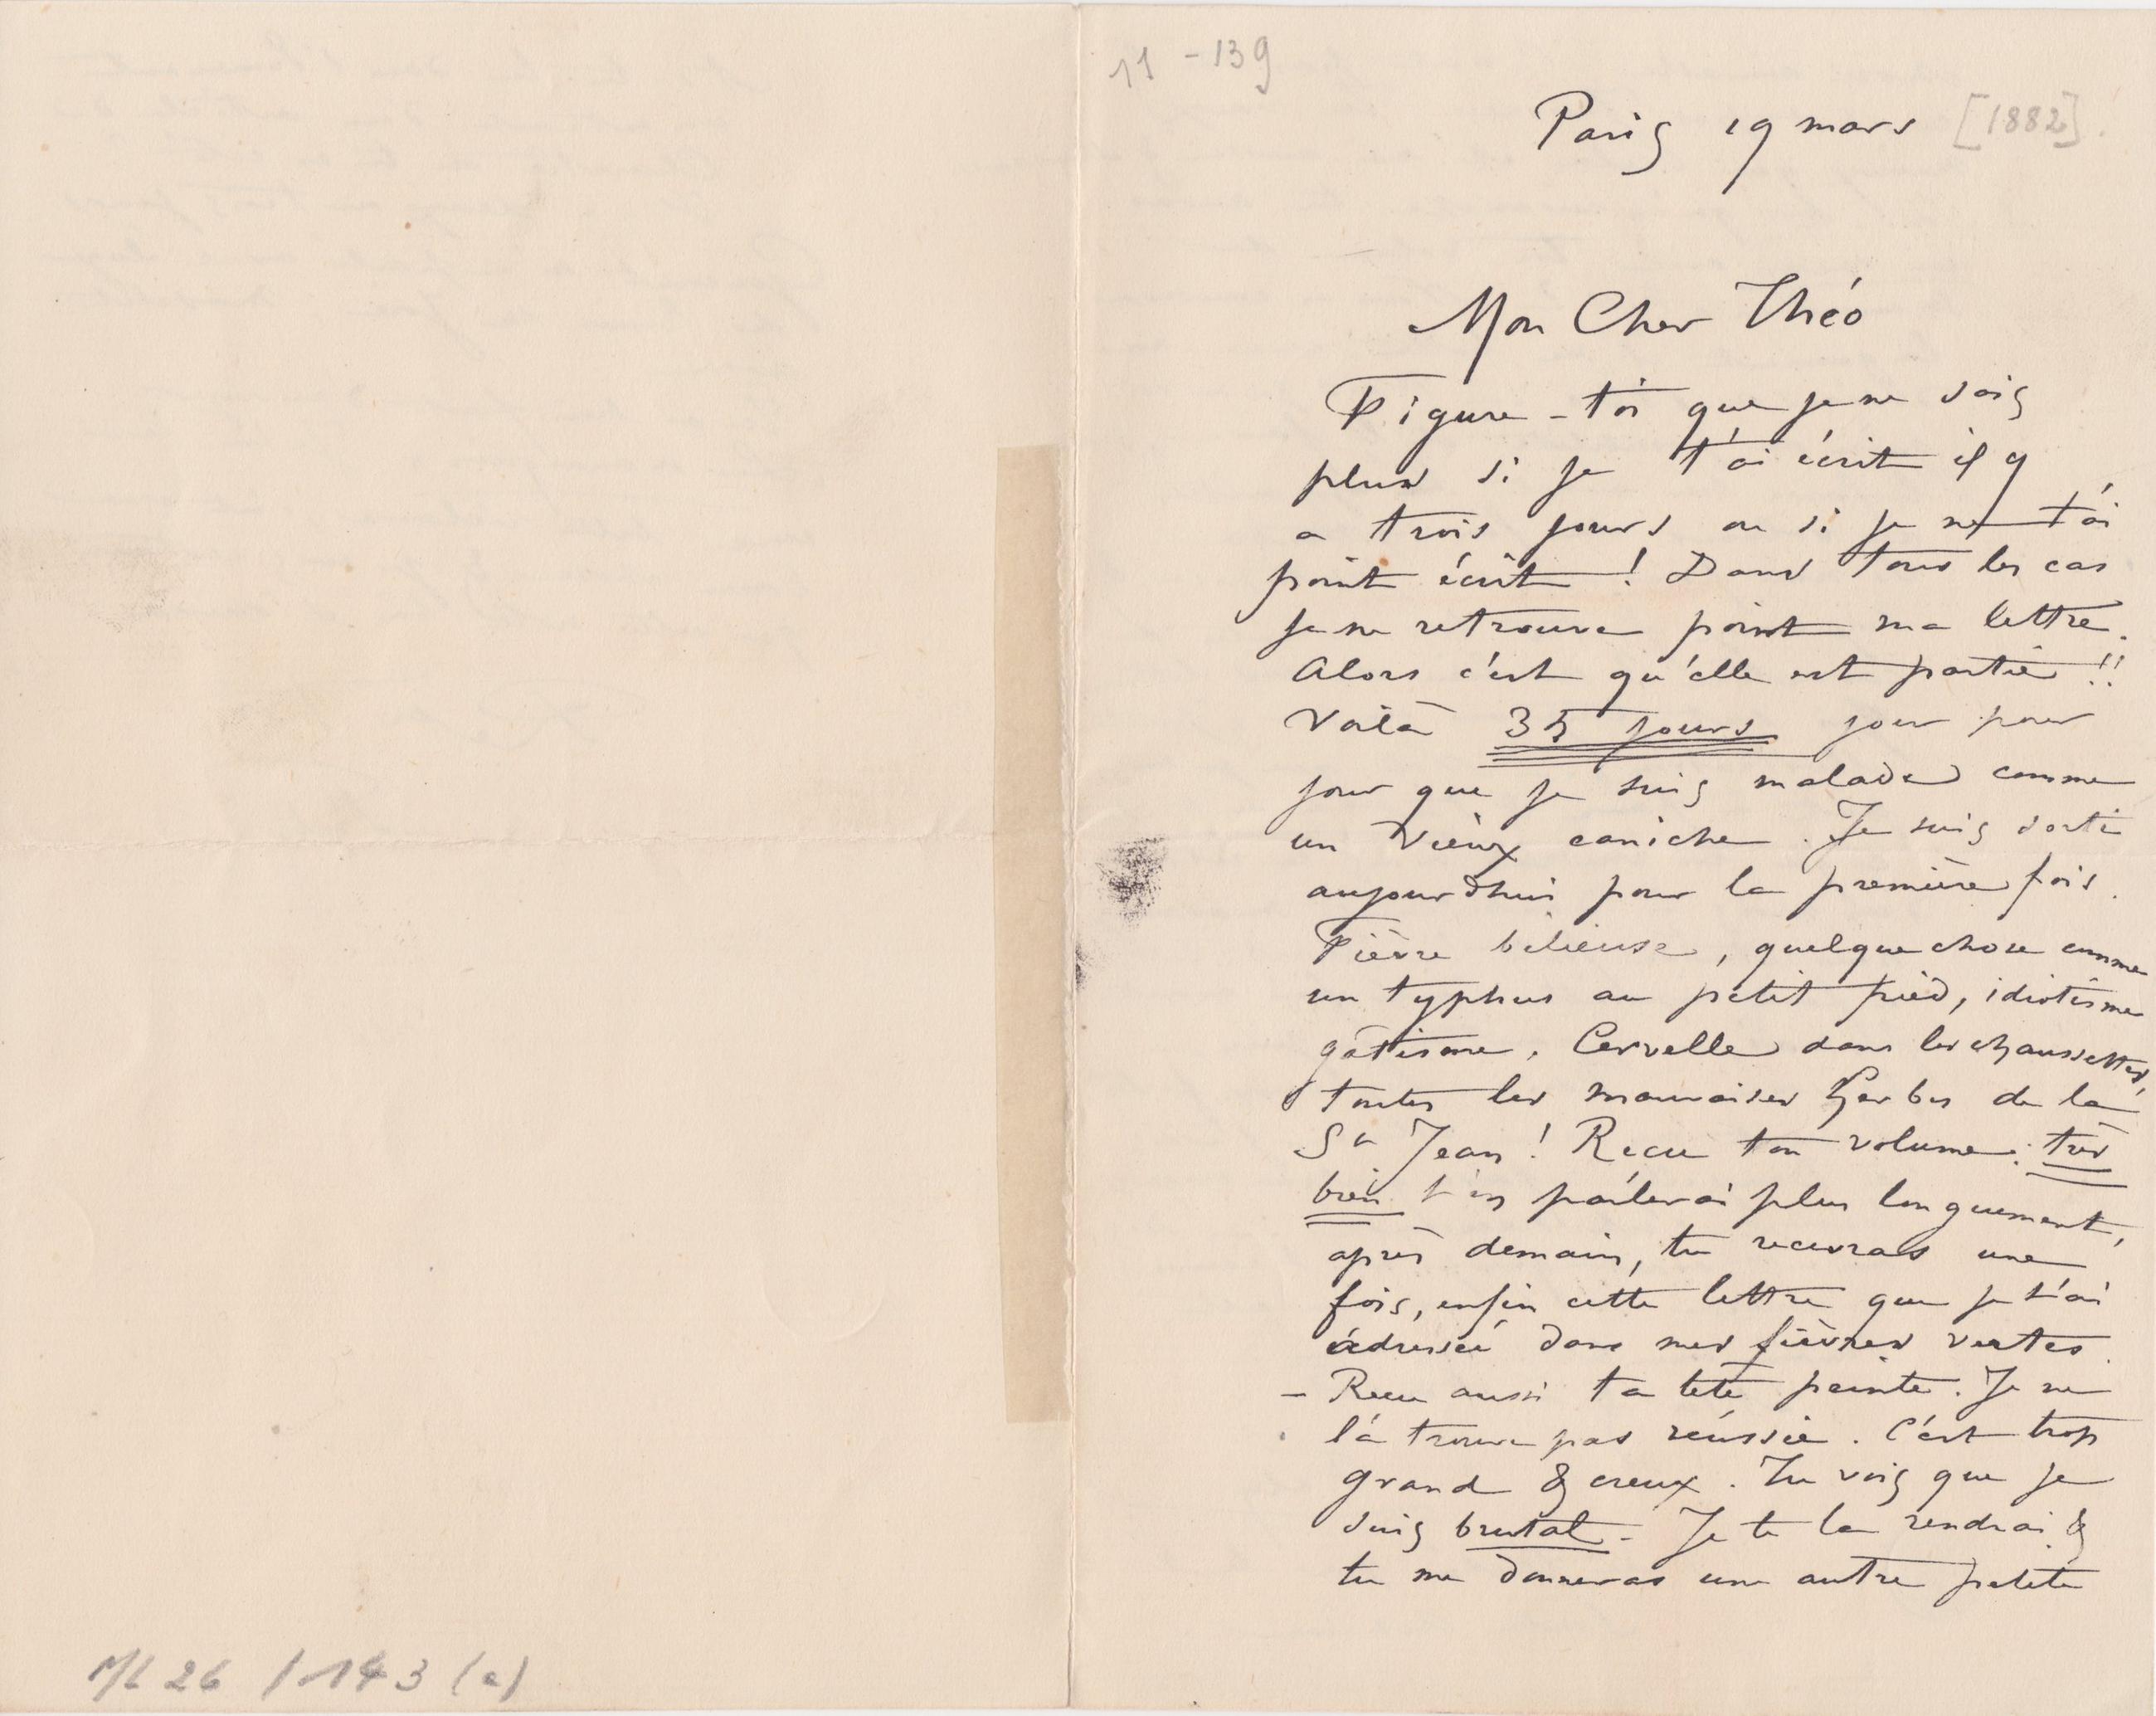 11 - 139
Paris 19 mars [1882]
Mon Cher Théo
Figure-toi que je ne sais
plus si je t'ai écrit il y
a trois jours ou si je ne t'ai
point écrit ! Dans tous les cas
je ne retrouve point ma lettre.
Alors c'est qu'elle est partie !!
Voilà 35 jours jour pour
jour que je suis malade comme
un vieux caniche. Je suis sorti
aujourdhui pour la première fois.
Fièvre bilieuse, quelque chose comme
un typhus au petit pied, idiotisme
gâtisme. Cervelle dans les chaussettes,
toutes les mauvaises herbes de la
St Jean ! Recu ton volume : très
bien t'en parlerai plus longuement,
après demain, tu recevras une
fois, enfin cette lettre que je t'ai
adressée dans mes fièvres vertes.
- Recu aussi ta tete peinte. Je ne
la trouve pas réussie. C'est trop
grand & creux. Tu vois que je
suis brutal - Je te la rendrai &
tu me donneras une autre petite
ML 26 / 143 (a)